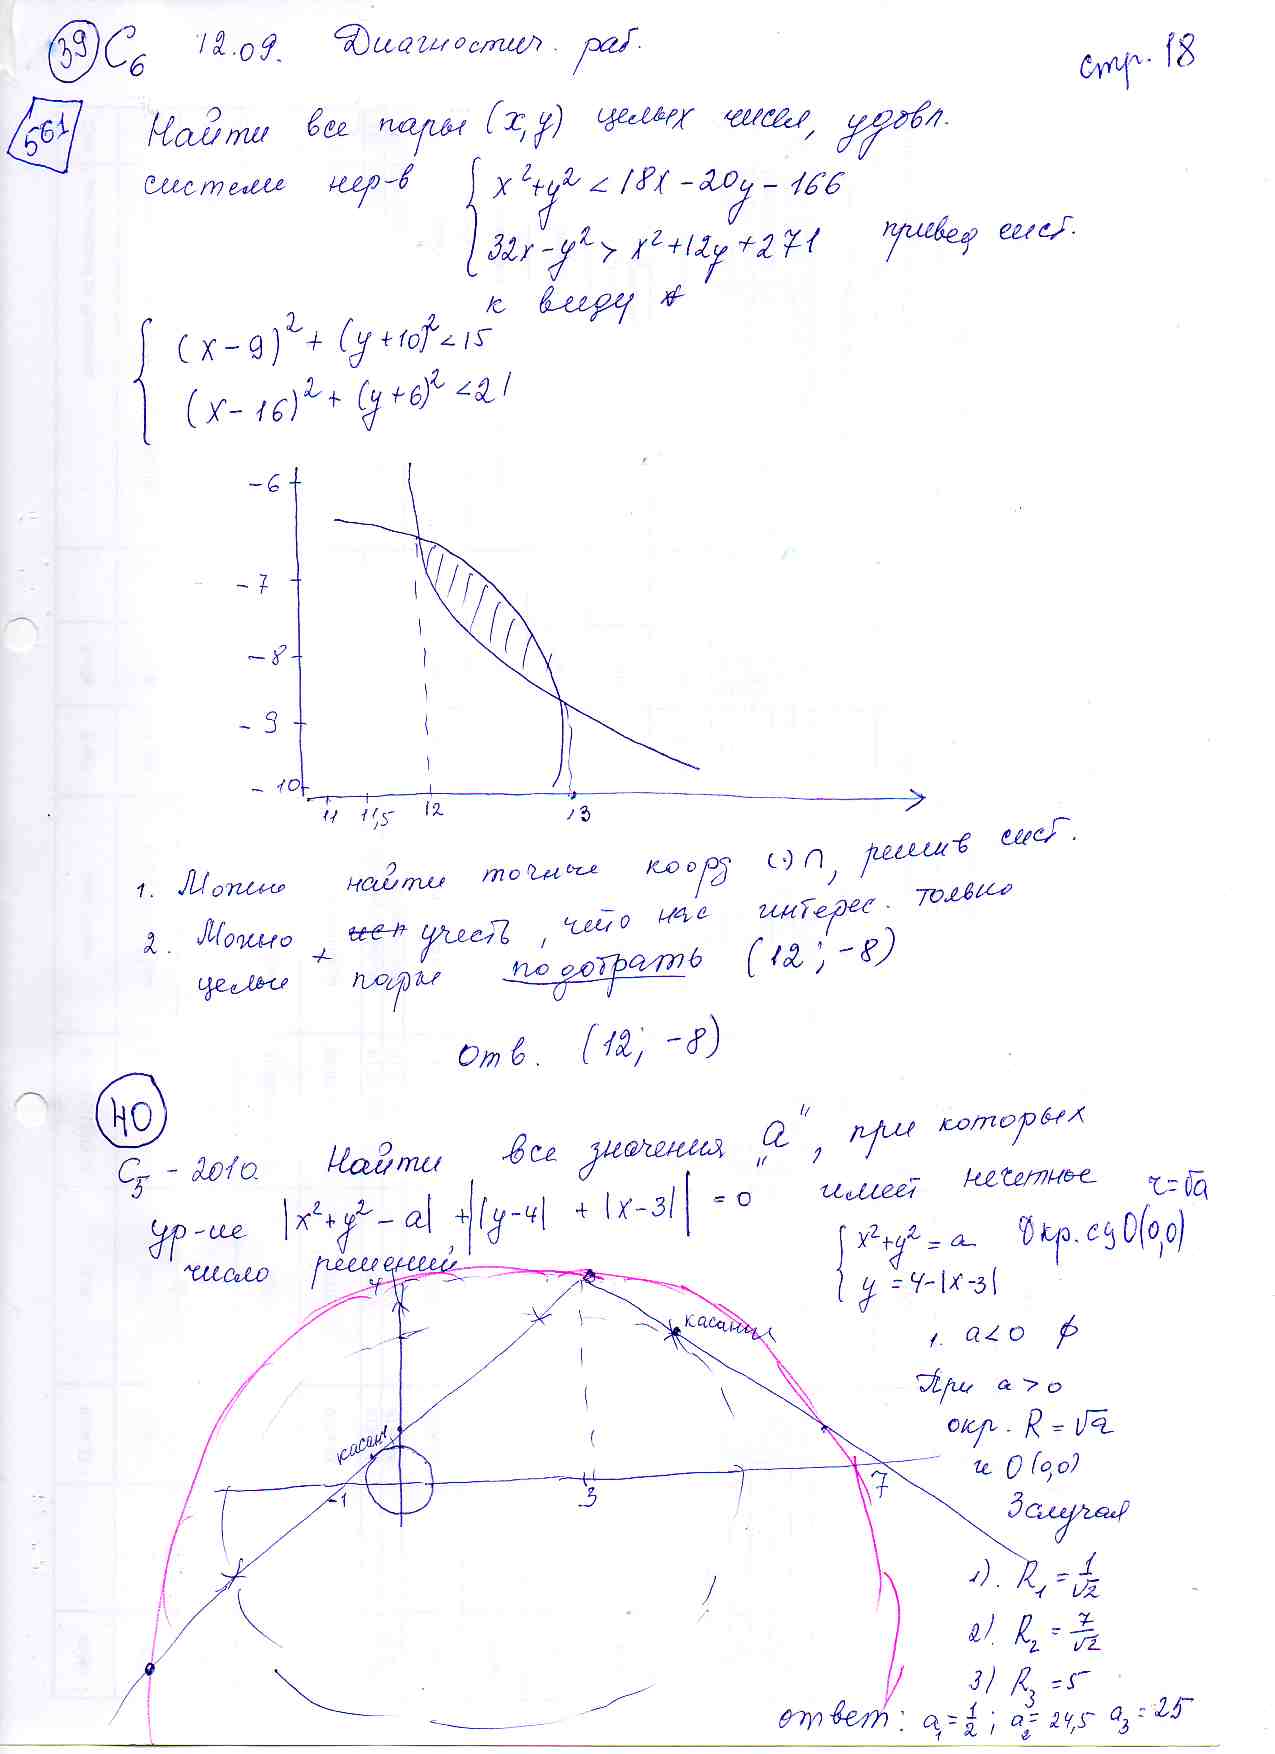 39 С6 12.09. Диагностич. раб. стр. 18
561 Найти все пары (x,y) целых чисел, удовл.
системе нер-в { x²+y² < 18x - 20y - 166
32x - y² > x² + 12y + 271 привед сист.
к виду
{ (x-9)² + (y+10)² < 15
(x-16)² + (y+6)² < 21
-6
-7
-8
-9
-10
11 11,5 12 13
1. Можно найти точные коорд (·) ∩, решив сист.
2. Можно учесть, что нас интерес. только
целые пары подобрать (12; -8)
Отв. (12; -8)
40
C5 - 2010. Найти все значения "a", при которых
ур-ие |x²+y²-a| + ||y-4| + |x-3|| = 0 имеет нечетное
число решений
r=√a
{ x²+y² = a Окр. с ц O(0,0)
y = 4-|x-3|
1. a<0 ∅
При a>0
окр. R = √a
и O(0,0)
3 случая
1). R₁ = 1/√2
2). R₂ = 7/√2
3) R₃ = 5
4
касание
касан
-1 3 7
ответ: a₁ = 1/2; a₂ = 24,5 a₃ = 25